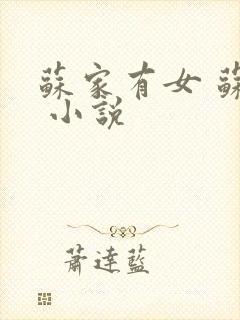 蘇家有女 蘇
小說
蕭達藍